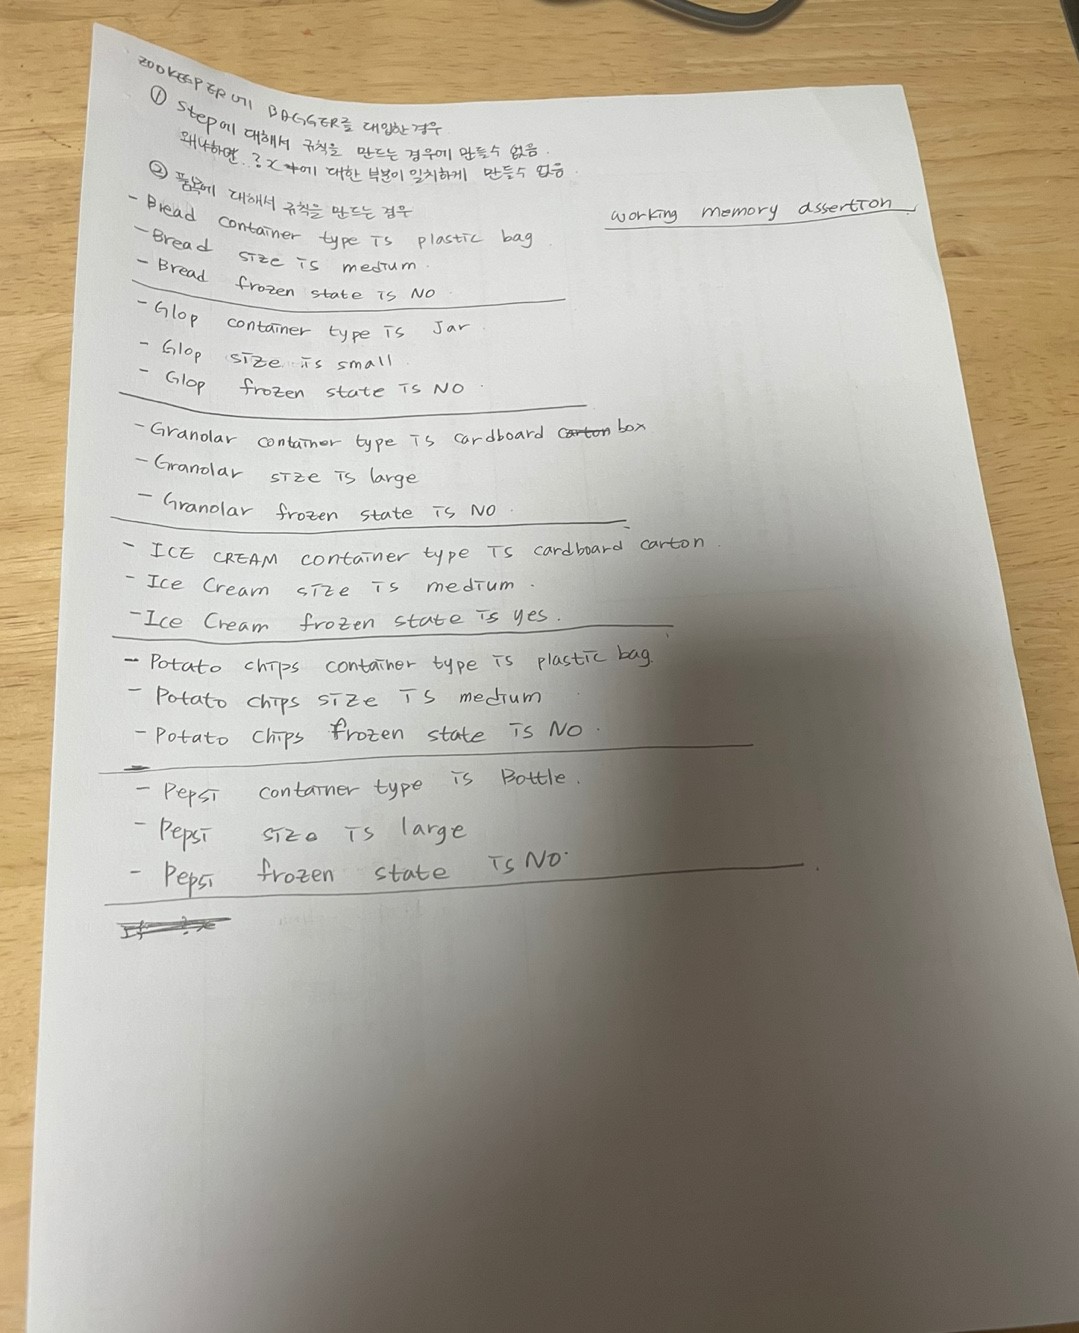 ZOOKEEPER에 BAGGER를 대입한 경우
① Step에 대해서 규칙을 만드는 경우에 만들수 없음.
왜냐하면 ?x에 대한 부분이 일치하게 만들수 없음.
② 품목에 대해서 규칙을 만드는 경우
working memory assertion
- Bread container type is plastic bag
- Bread size is medium.
- Bread frozen state is NO
- Glop container type is Jar
- Glop size is small
- Glop frozen state is NO.
- Granolar container type is cardboard carton box
- Granolar size is large
- Granolar frozen state is NO.
- ICE CREAM container type is cardboard carton.
- Ice Cream size is medium.
- Ice Cream frozen state is yes.
- Potato chips container type is plastic bag.
- Potato chips size is medium
- Potato chips frozen state is NO.
- Pepsi container type is Bottle.
- Pepsi size is large
- Pepsi frozen state is NO.
If ?x